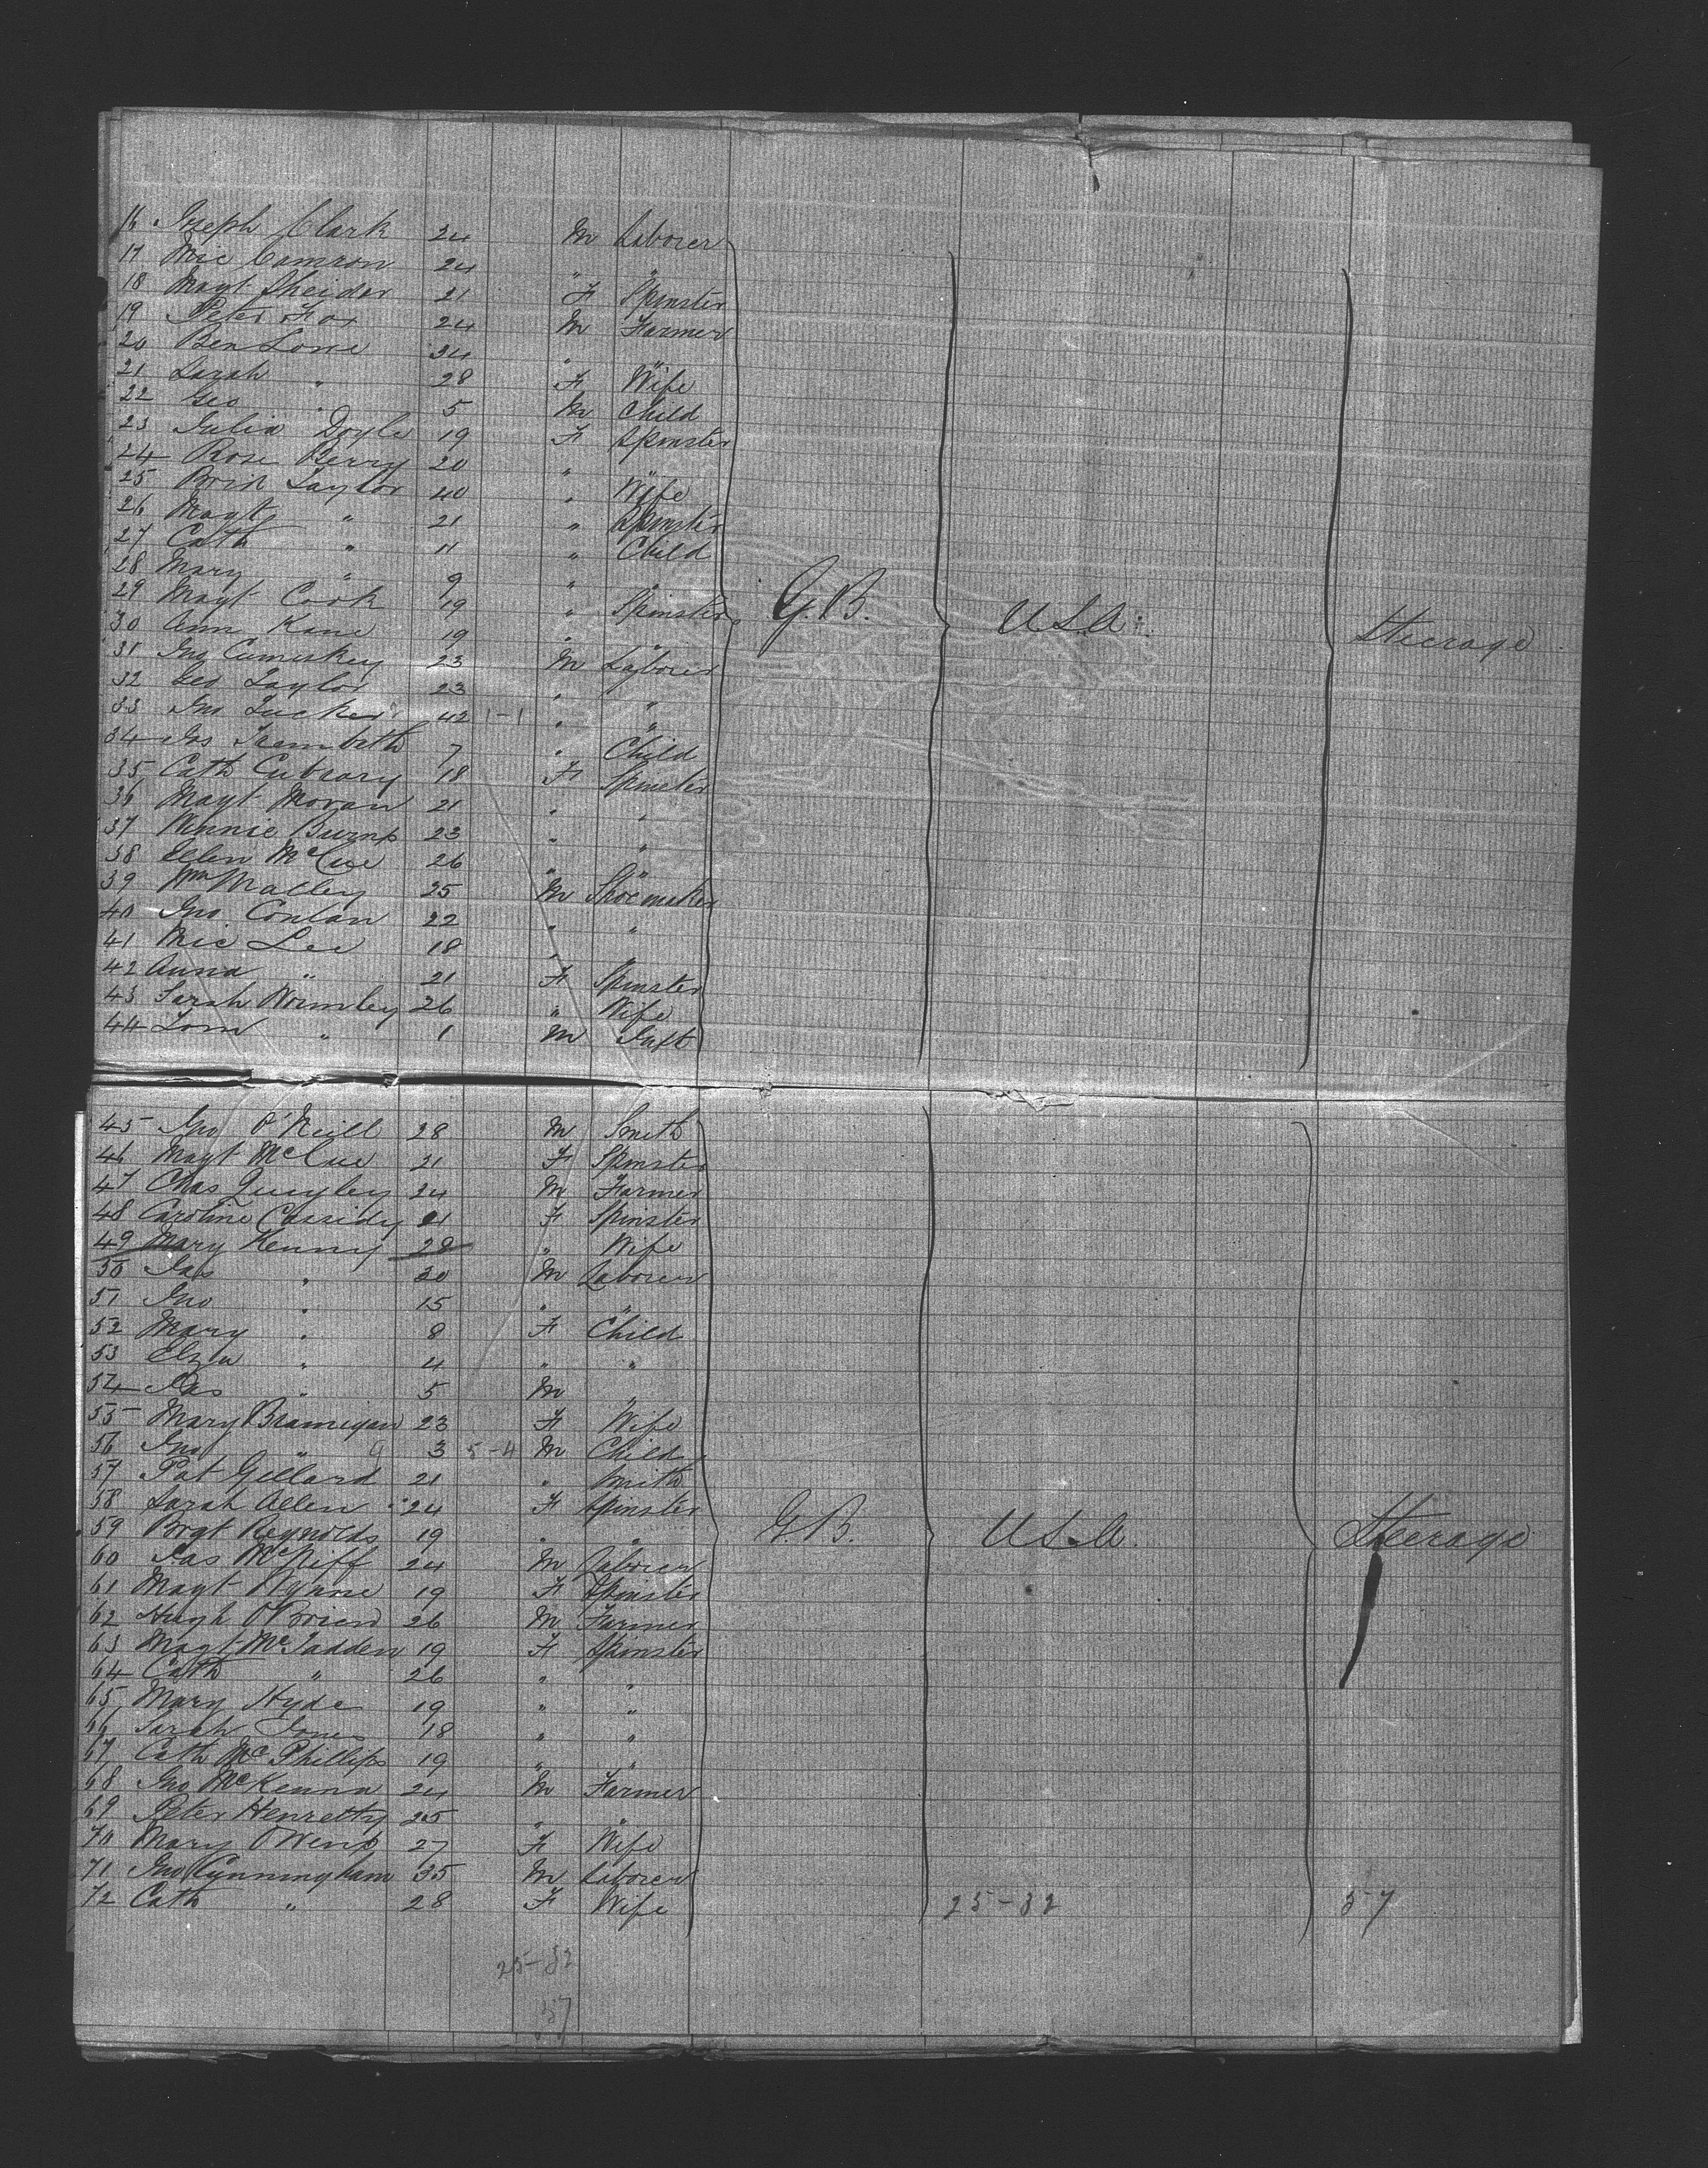 16 Joseph Clark 24 M Laborer
17 Mic Camron 24 " "
18 Magt Sheidar 21 F Spinster
19 Peter Fox 24 M Farmer
20 Ben Lowe 34 " "
21 Sarah " 28 F Wife
22 Geo " 5 M Child
23 Julia Doyle 19 F Spinster
24 Rose Berry 20 " "
25 Brid Taylor 40 " Wife
26 Magt " 21 " Spinster
27 Cath " 11 " Child
28 Mary " 9 " "
29 Magt Cook 19 " Spinster G.B. U.S.A. Steerage
30 Ann Kane 19 " "
31 Jno Cumiskey 23 M Laborer
32 Geo Taylor 23 " "
33 Jno Tucker 42 1-1 " "
34 Jas Trembath 7 " Child
35 Cath Cubrary 18 F Spinster
36 Magt Moran 21 " "
37 Winnie Burns 23 " "
38 Ellen McCue 26 " "
39 Wm Malley 25 M Shoemaker
40 Jno Conlan 22 " "
41 Mic Lee 18 " "
42 Anna " 21 F Spinster
43 Sarah Wormley 26 " Wife
44 Tom " 1 M Inft
45 Jno O'Neill 28 M Smith
46 Magt McCue 21 F Spinster
47 Chas Quigley 24 M Farmer
48 Caroline Cassidy 21 F Spinster
49 Mary Kenny 28 " Wife
50 Jas " 30 M Laborer
51 Jno " 15 " "
52 Mary " 8 F Child
53 Elza " 4 " "
54 Jas " 5 M "
55 Mary Bramigan 23 F Wife
56 Jno " 3 5-4 M Child
57 Pat Gillard 21 " Smith
58 Sarah Allen 24 F Spinster
59 Brgt Reynolds 19 " " G.B. U.S.A. Steerage
60 Jas McNiff 24 M Laborer
61 Magt Wynne 19 F Spinster
62 Hugh O'Brien 26 M Farmer
63 Magt McFadden 19 F Spinster
64 Cath " 26 " "
65 Mary Hyde 19 " "
66 Sarah Jones 18 " "
67 Cath McPhillips 19 " "
68 Jno McKenna 24 M Farmer
69 Peter Henretty 25 " "
70 Mary Owens 27 F Wife
71 Jno Cunningham 35 M Laborer
72 Cath " 28 F Wife 25-32 57
25-32
57